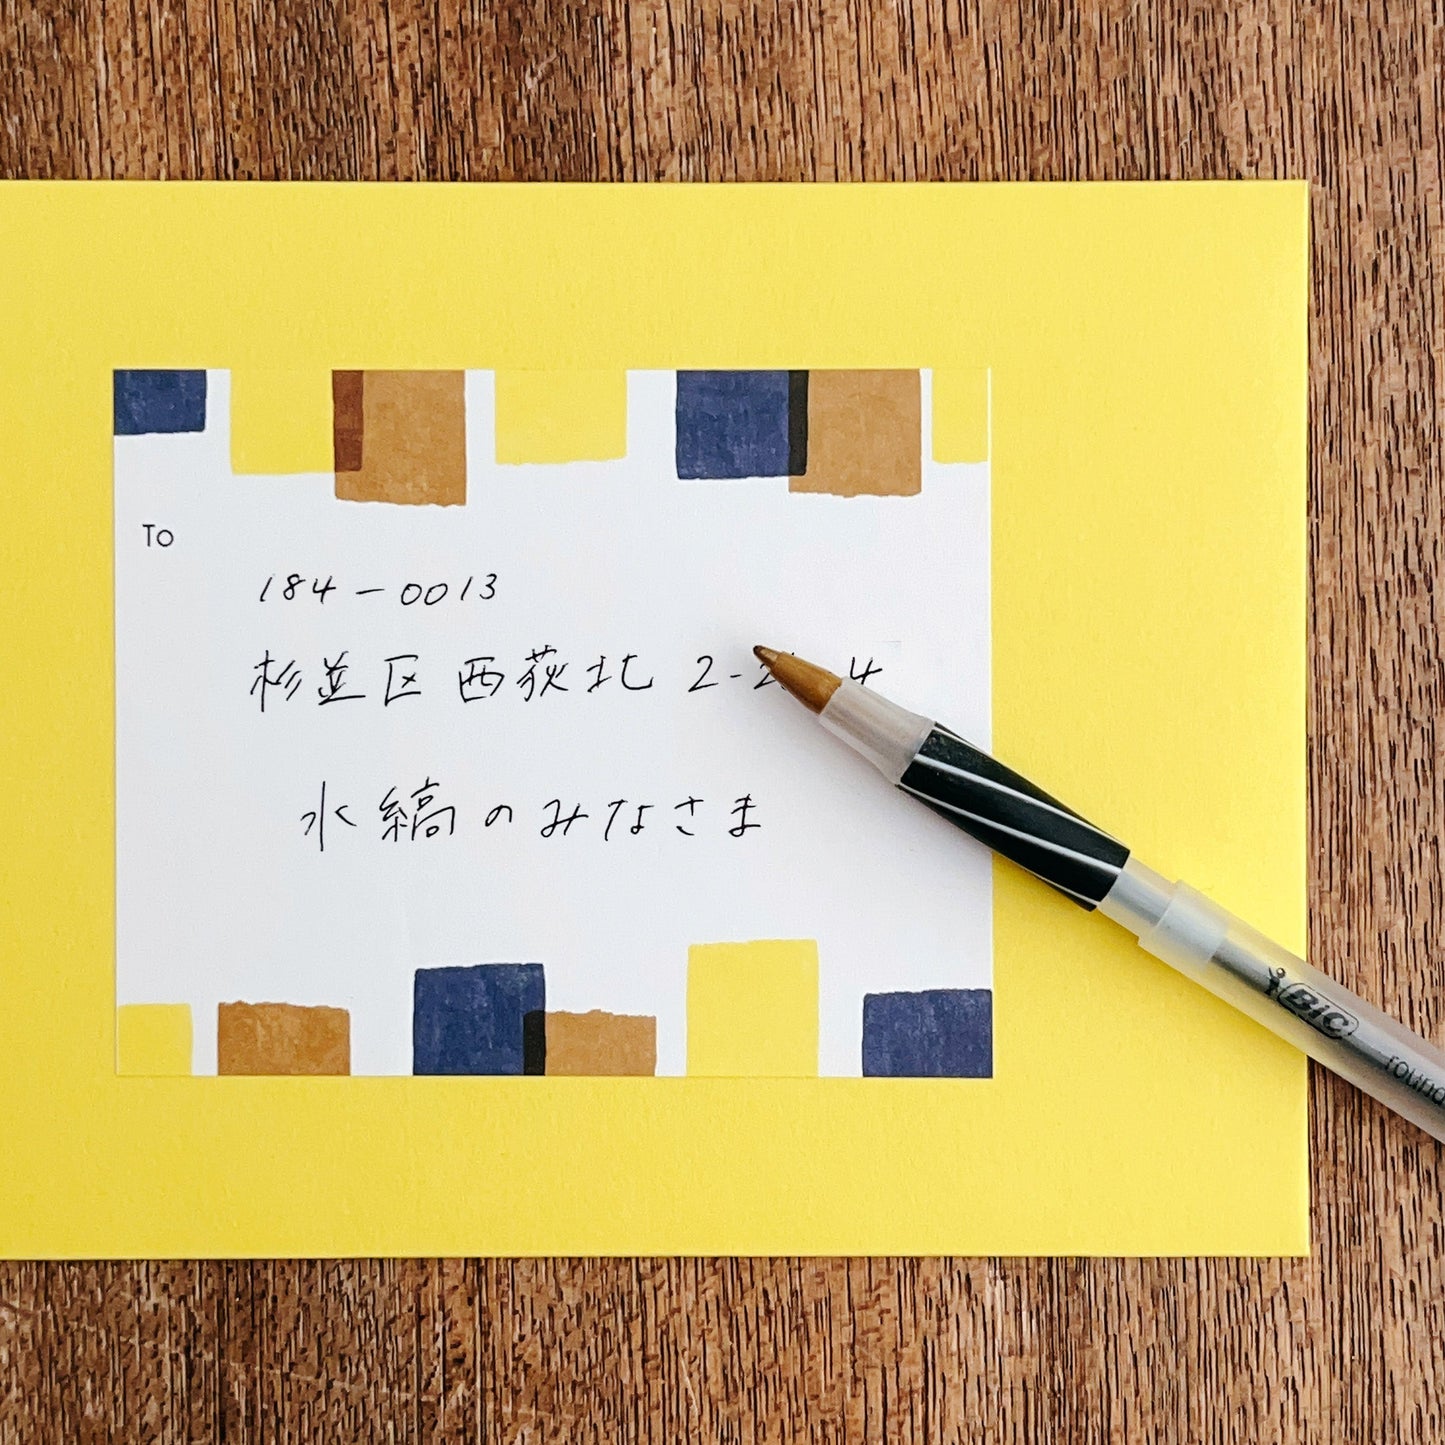 To
184-0013
杉並区 西荻北 2-2 4
水縞のみなさま
BIC
round